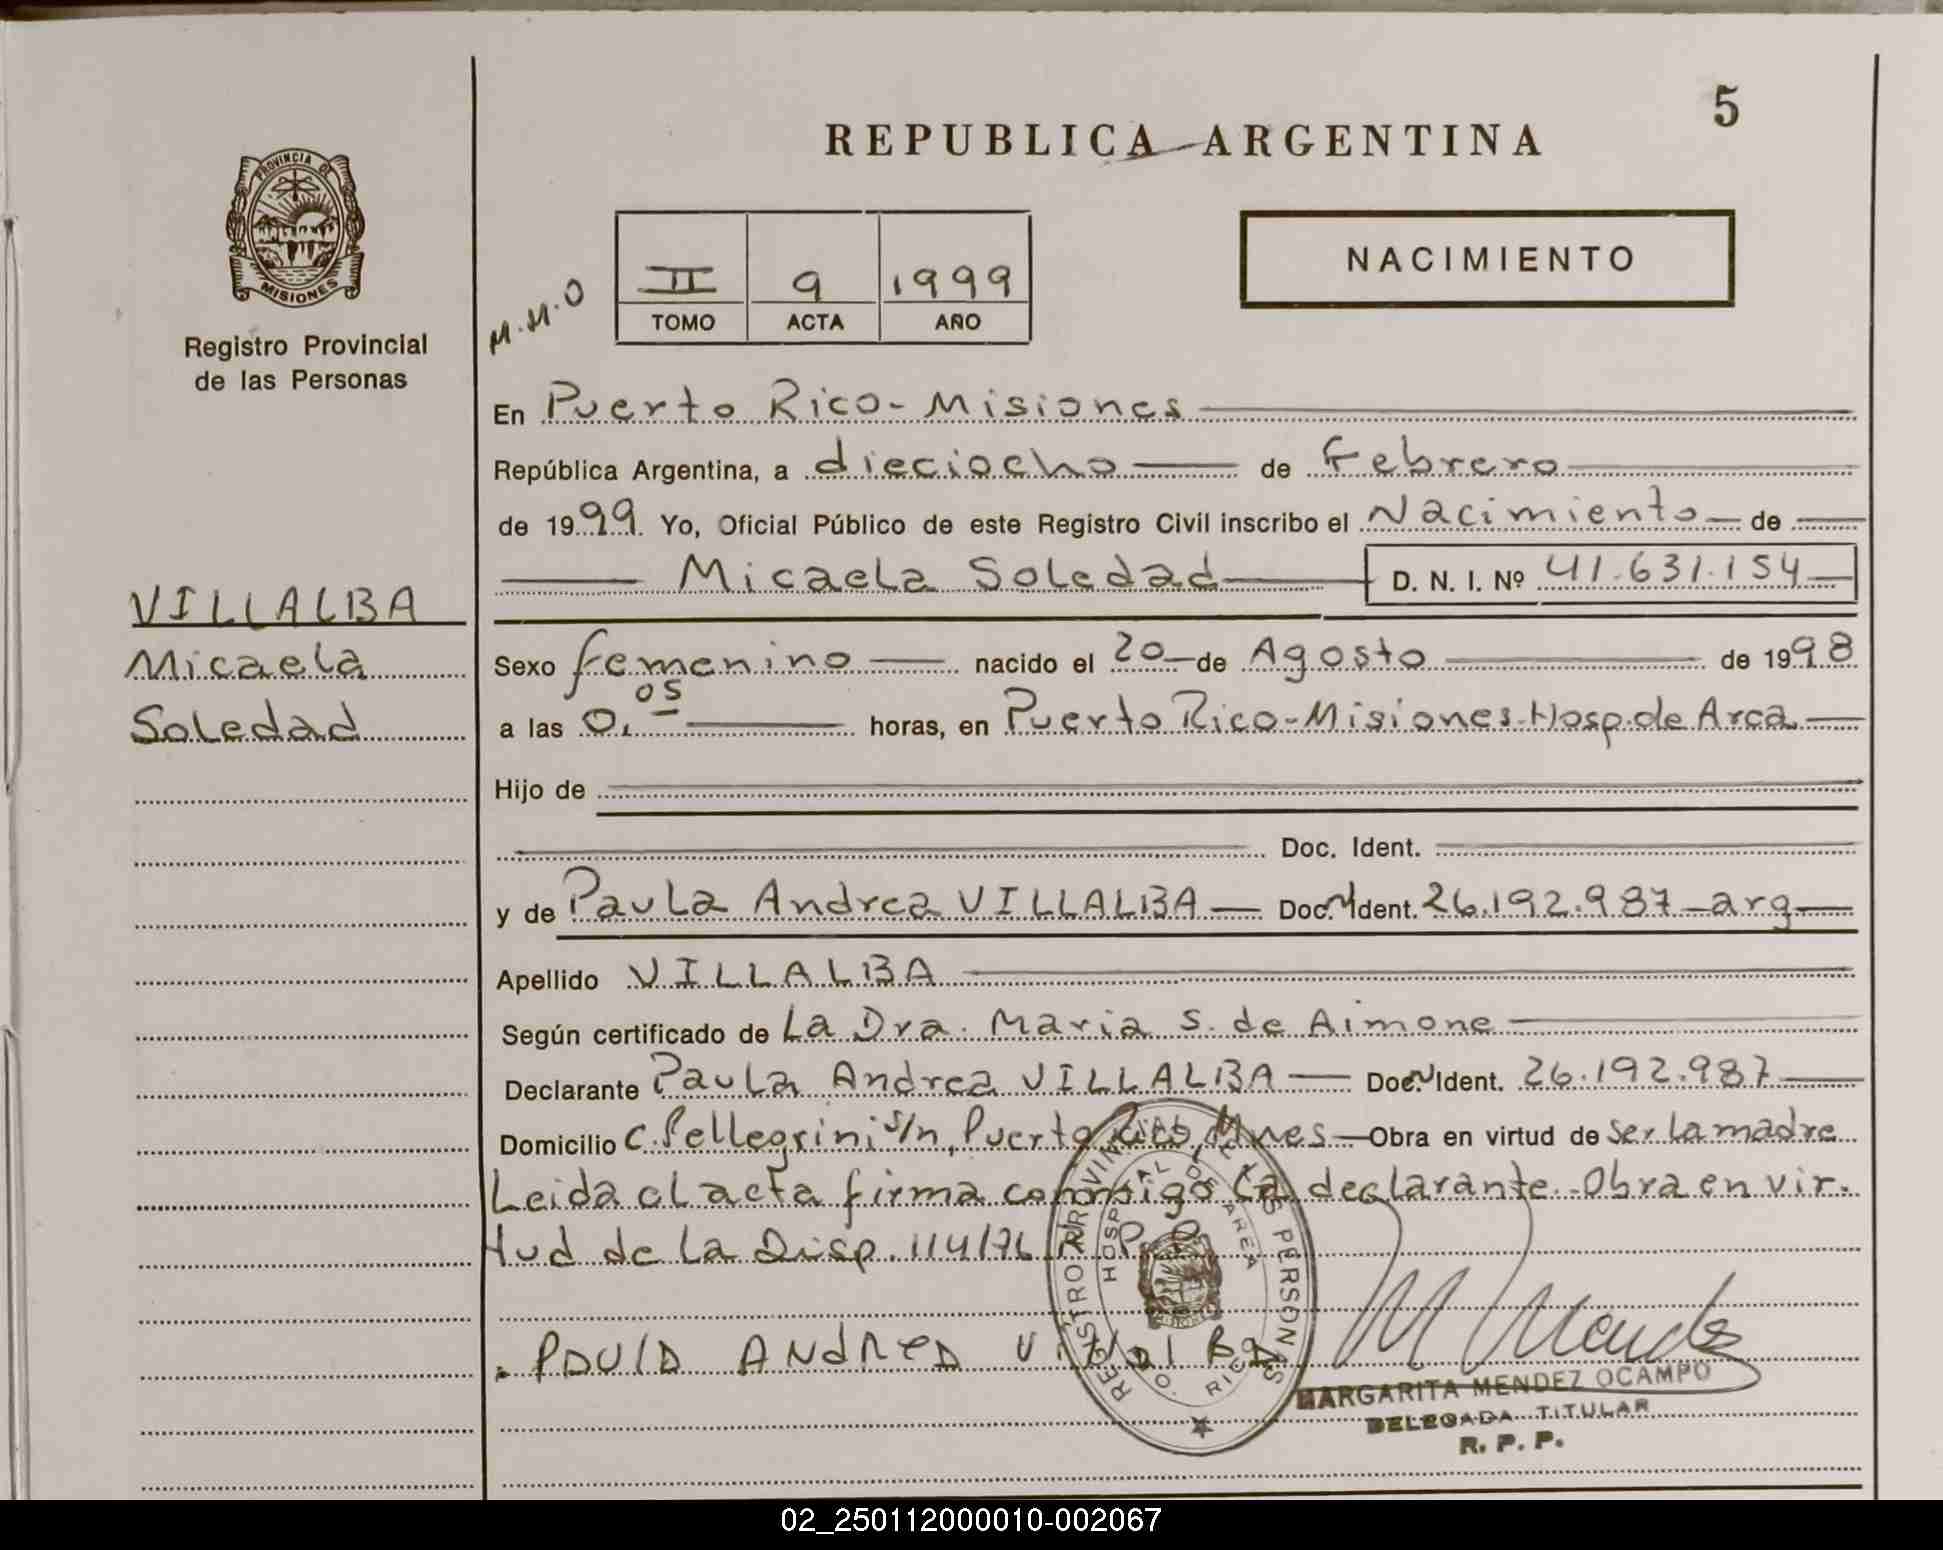 5
REPUBLICA ARGENTINA
PROVINCIA DE
MISIONES
Registro Provincial
de las Personas
M.M.O
II 9 1999
TOMO ACTA AÑO
NACIMIENTO
En Puerto Rico - Misiones
República Argentina, a dieciocho de Febrero
de 1999. Yo, Oficial Público de este Registro Civil inscribo el Nacimiento de
Micaela Soledad D. N. I. Nº 41.631.154
VILLALBA
Micaela
Soledad
Sexo femenino nacido el 20 de Agosto de 1998
a las 0,05 horas, en Puerto Rico - Misiones - Hosp. de Area
Hijo de
Doc. Ident.
y de Paula Andrea VILLALBA Doc. N Ident. 26.192.987 - arg
Apellido VILLALBA
Según certificado de La Dra. Maria S. de Aimone
Declarante Paula Andrea VILLALBA Doc. N Ident. 26.192.987
Domicilio C. Pellegrini s/n, Puerto Rico, Mnes - Obra en virtud de ser la madre
Leida el acta firma conmigo la declarante. Obra en vir.
tud de la Disp. 114/76 R. P. P.
REGISTRO PROVINCIAL DE LAS PERSONAS
HOSPITAL DE AREA
PTO. RICO
Paula Andrea Villalba
M Mendez
MARGARITA MENDEZ OCAMPO
DELEGADA TITULAR
R. P. P.
02_250112000010-002067